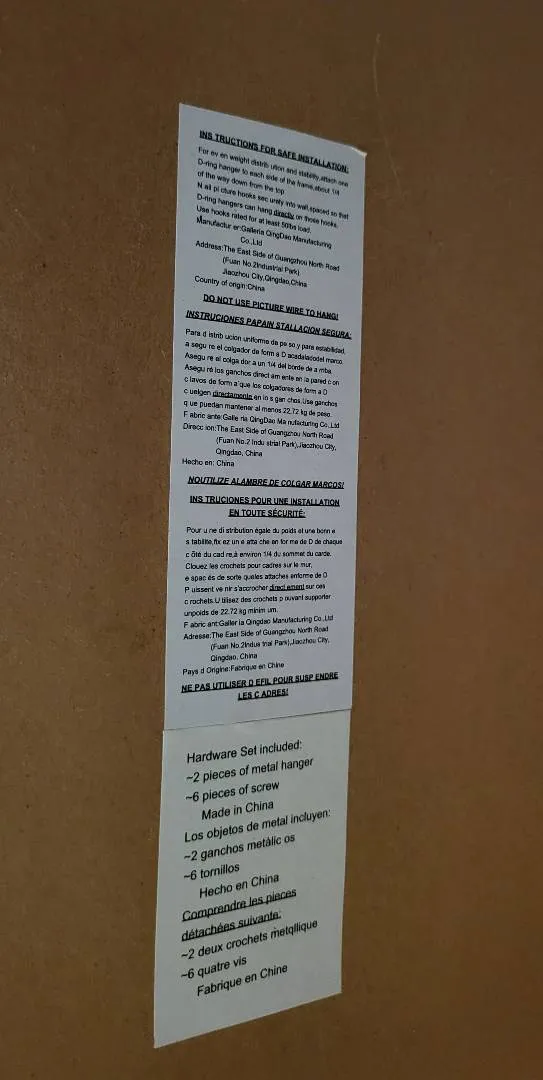 INS TRUCTIONS FOR SAFE INSTALLATION:
For ev en weight distrib ution and stability,attach one
D-ring hanger to each side of the frame,about 1/4
of the way down from the top
N ail pi cture hooks sec urely into wall,spaced so that
D-ring hangers can hang directly on those hooks.
Use hooks rated for at least 50lbs load.
Manufactur er:Galleria QingDao Manufacturing
Co.,Ltd
Address:The East Side of Guangzhou North Road
(Fuan No.2Industrial Park)
Jiaozhou City,Qingdao,China
Country of origin:China
DO NOT USE PICTURE WIRE TO HANG!
INSTRUCIONES PAPAIN STALLACION SEGURA:
Para d istrib ucion uniforme de pe so y para estabilidad,
a segu re el colgador de form a D acadaladodel marco.
Asegu re el colga dor a un 1/4 del borde de a rriba.
Asegu re los ganchos direct am ente en la pared c on
c lavos de form a que los colgadores de form a D
c uelgen directamente en lo s gan chos.Use ganchos
q ue puedan mantener al menos 22.72 kg de peso.
F abric ante:Galle ria QingDao Ma nufacturing Co.,Ltd
Direcc ion:The East Side of Guangzhou North Road
(Fuan No.2 Indu strial Park),Jiaozhou City,
Qingdao, China
Hecho en: China
NOUTILIZE ALAMBRE DE COLGAR MARCOS!
INS TRUCIONES POUR UNE INSTALLATION
EN TOUTE SÉCURITÉ:
Pour u ne di stribution égale du poids et une bonn e
s tabilite,fix ez un e atta che en for me de D de chaque
c ôté du cad re,à environ 1/4 du sommet du carde.
Clouez les crochets pour cadres sur le mur,
e spac és de sorte queles attaches enforme de D
P uissent ve nir s'accrocher direct ement sur ces
c rochets.U tilisez des crochets p ouvant supporter
unpoids de 22.72 kg minim um.
F abric ant:Galler ia Qingdao Manufacturing Co.,Ltd
Adresse:The East Side of Guangzhou North Road
(Fuan No.2Indus trial Park),Jiaozhou City,
Qingdao, China
Pays d Origine:Fabrique en Chine
NE PAS UTILISER D EFIL POUR SUSP ENDRE
LES C ADRES!
Hardware Set included:
~2 pieces of metal hanger
~6 pieces of screw
Made in China
Los objetos de metal incluyen:
~2 ganchos metàlic os
~6 tornillos
Hecho en China
Comprendre les pieces
détachées suivante:
~2 deux crochets metqllique
~6 quatre vis
Fabrique en Chine